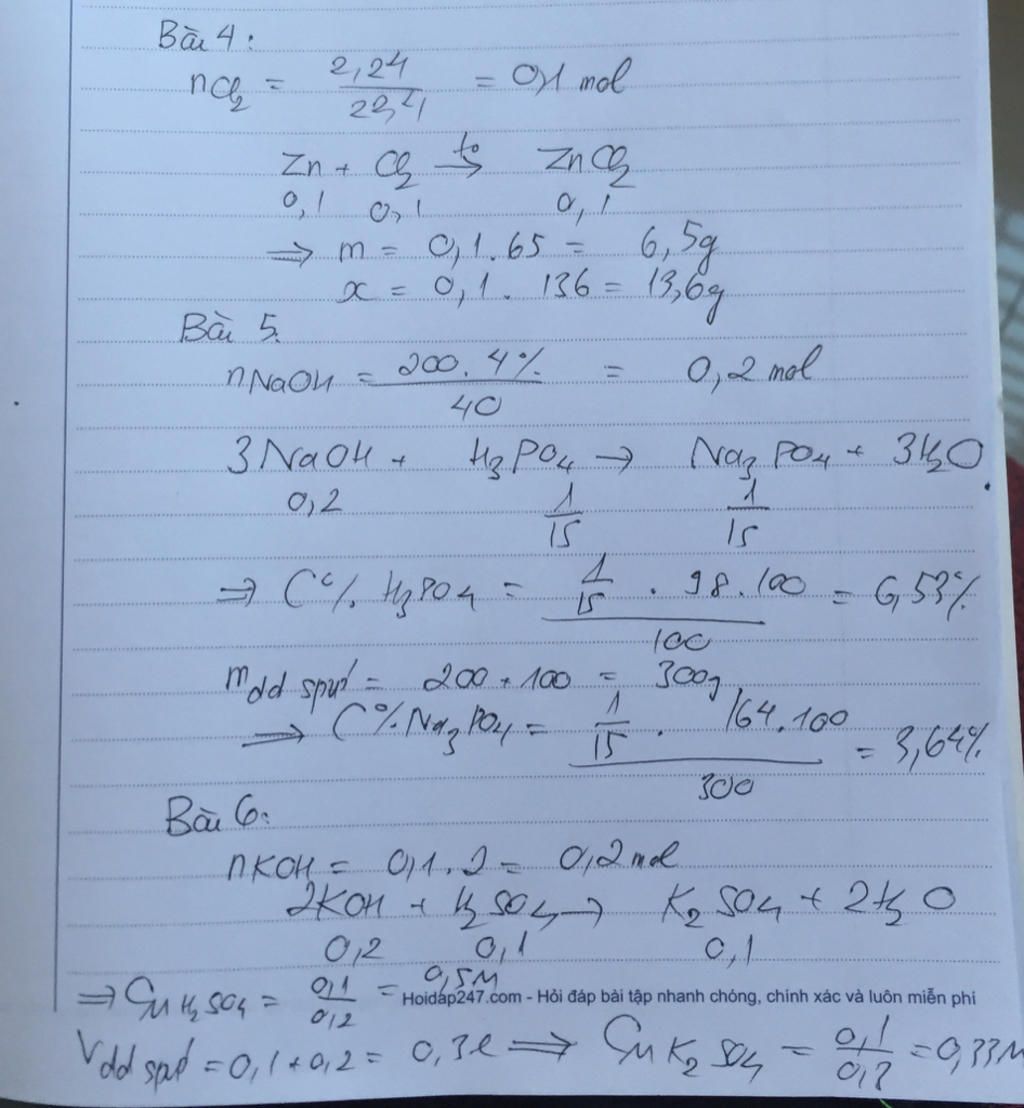 Bài 4:
nCl2 = 2,24 / 22,4 = 0,1 mol
Zn + Cl2 →(to) ZnCl2
0,1 0,1 0,1
⇒ m = 0,1. 65 = 6,5g
x = 0,1. 136 = 13,6g
Bài 5.
nNaOH = 200. 4% / 40 = 0,2 mol
3NaOH + H3PO4 → Na3PO4 + 3H2O
0,2 1/15 1/15
⇒ C% H3PO4 = 1/15 . 98.100 / 100 = 6,53%
mdd spứ = 200 + 100 = 300g
⇒ C% Na3PO4 = 1/15 . 164.100 / 300 = 3,64%
Bài 6:
nKOH = 0,1.2 = 0,2 mol
2KOH + H2SO4 → K2SO4 + 2H2O
0,2 0,1 0,1
⇒ CM H2SO4 = 0,1 / 0,2 = 0,5M
Hoidap247.com - Hỏi đáp bài tập nhanh chóng, chính xác và luôn miễn phí
Vdd spứ = 0,1 + 0,2 = 0,3l ⇒ CM K2SO4 = 0,1 / 0,3 = 0,33M